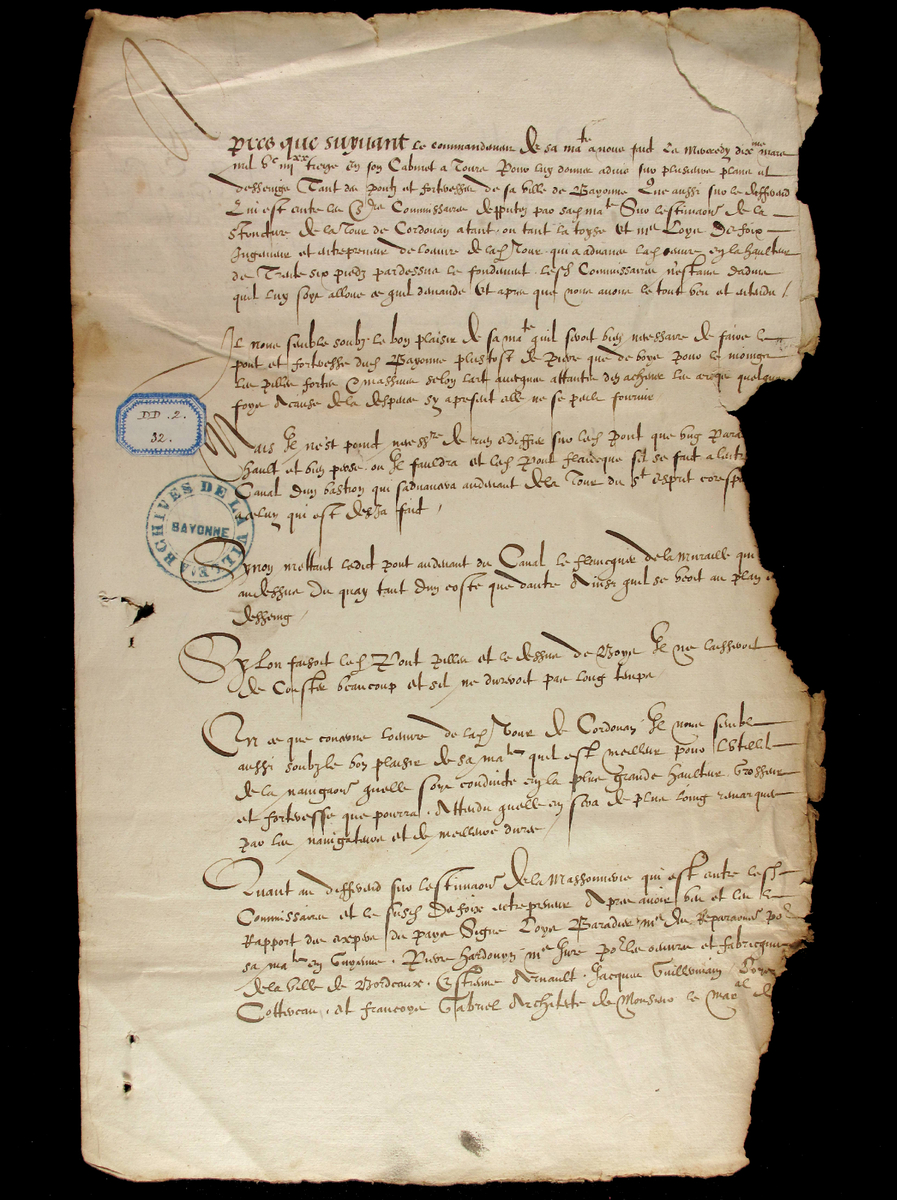 Apres que suyvant le commandement de sa mate avons fait le mercredy dixme mars
mil Vc iiiixx treize en son Cabinet a Tours Pour luy donner advis sur plusieurs plans et
desseings Tant des pontz et forteresses de sa ville de Bayonne Que aussi sur le differend
Qui est entre les Commissaires depputez par sad mate Sur lestimaon de la
structure de la Tour de Cordouan atant ou tant la toyse Et me Loys De foix
Ingenieur et entrepreneur de loeuvre de lad Tour qui a advance lad oeuvre en la haulteur
de Trente six piedz pardessus le fondement lesd Commissaires nestans dadvis
quil luy soye alloue ce quil demande Et apres que nous avons le tout veu et entendu /
Il nous semble soubz le bon plaisir de sa mate quil seroit bien necessaire de faire le
pont et forteresse dud Bayonne plustost de pierre que de boys pour le moings
les pilles fortes massives selon lart avecques attante des achever les arcqs quelque
foys acause de la despense sy apresent elle ne se peult fournir
Mais Il nest point necessre de rien ediffier sur led pont que ung Para
hault et bien perse ou Il fauldra et led Pont flancque sil se fait a lautre
Canal dun bastion qui sadvancera audevant de la Tour du St esprit corespo
acelluy qui est desja fait /
Synon mettant ledict pont audevant du Canal le flancquer de la muraille qui
audessus du quay tant dun coste que dautre Ainsi quil se veoit au plan
desseing
Sy lon faisoit led Pont pilles et le dessus de Boys Il ne laisseroit
de Couster beaucoup et sil ne dureroit pas long temps
En ce que concerne loeuvre de lad Tour de Cordouan Il nous semble
aussi soubz le bon plaisir de sa mate quil est meilleur pour Lutilite
de la navigaon quelle soye conduicte en la plus grande haulteur Grosseur
et forteresse que pourra Attendu quelle en sera de plus loing remarquee
par les navigateurs et de meilleure duree
Quant au differend sur lestimaon de la Massonnerie qui est entre lesd
Commissaires et le susd Defoix entrepreneur Apres avoir veu et leu le
Rapport des expers du pays Signe Loys Baradier me des Reparaons por
sa mate en Guyenne Pierre Hardouyn me Jure por les oeuvres et fabricques
de la ville de Bordeaux Estienne Arnault Jacques Guillermain
Cottereau et Francoys Gabriel Architete de Monsieur le Maral de
DD.2.
32.
ARCHIVES DE LA VILLE
BAYONNE